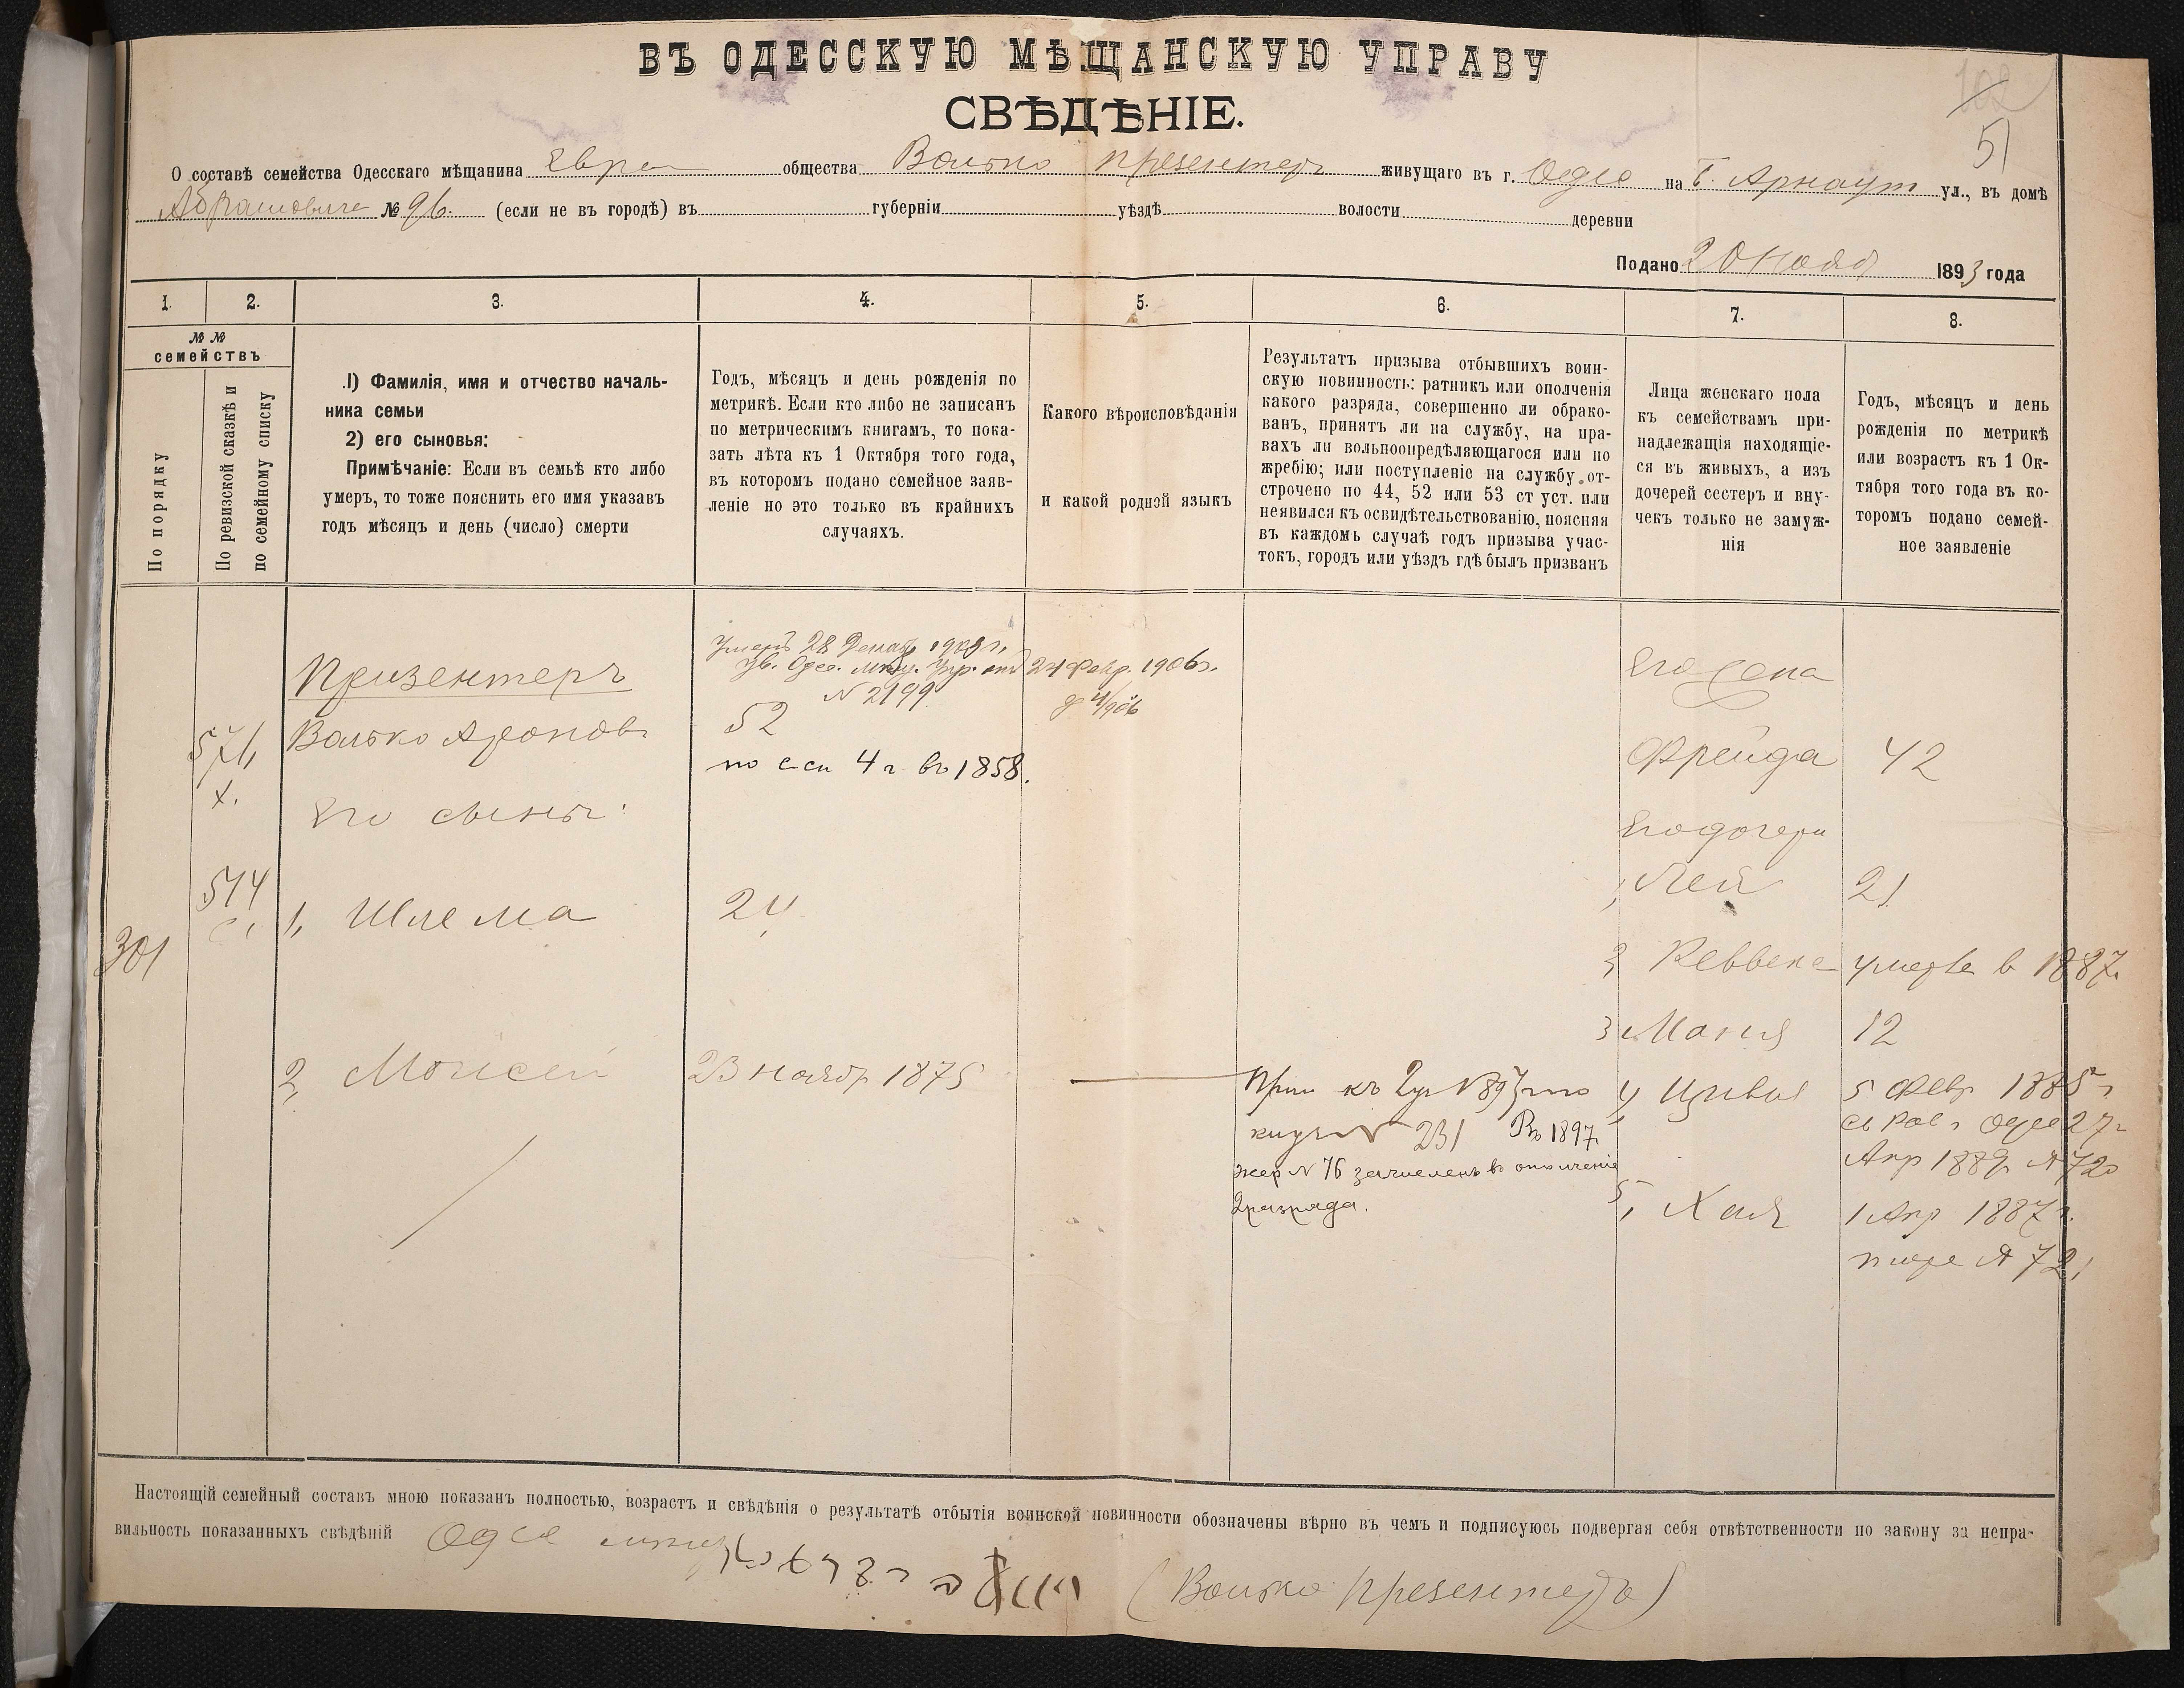 ВЪ ОДЕССКУЮ МѢЩАНСКУЮ УПРАВУ
СВѢДѢНІЕ.
102
51
О составѣ семейства Одесскаго мѣщанина Евре общества Волько Презентеръ живущаго въ г. Одес на Б. Арнаут ул., въ домѣ
Абрамовича № 96. (если не въ городѣ) въ губерніи уѣздѣ волости деревни
Подано 20 нояб 1893 года
1. 2. 3. 4. 5. 6. 7. 8.
№ №
семействъ
По порядку
По ревизской сказкѣ и
по семейному списку
1) Фамилія, имя и отчество началь-
ника семьи
2) его сыновья:
Примѣчаніе: Если въ семьѣ кто либо
умеръ, то тоже пояснить его имя указавъ
годъ мѣсяцъ и день (число) смерти
Годъ, мѣсяцъ и день рожденія по
метрикѣ. Если кто либо не записанъ
по метрическимъ книгамъ, то пока-
зать лѣта къ 1 Октября того года,
въ которомъ подано семейное заяв-
леніе но это только въ крайнихъ
случаяхъ.
Какого вѣроисповѣданія
и какой родной языкъ
Результатъ призыва отбывшихъ воин-
скую повинность: ратникъ или ополченія
какого разряда, совершенно ли обрако-
ванъ, принятъ ли на службу, на пра-
вахъ ли вольноопредѣляющагося или по
жребію; или поступленіе на службу от-
строчено по 44, 52 или 53 ст уст. или
неявился къ освидѣтельствованію, поясняя
въ каждомъ случаѣ годъ призыва учас-
токъ, городъ или уѣздъ гдѣ былъ призванъ
Лица женскаго пола
къ семействамъ при-
надлежащія находящіе-
ся въ живыхъ, а изъ
дочерей сестеръ и вну-
чекъ только не замуж-
нія
Годъ, мѣсяцъ и день
рожденія по метрикѣ
или возрастъ къ 1 Ок-
тября того года въ ко-
торомъ подано семей-
ное заявленіе
Умеръ 28 Декаб.
Ув. Одес. Мѣщ. Упр. от 24 Февр. 1906 г.
№ 2199
Призентеръ
Его жена
571 Волько Ароновъ 52
по с.сп 4 г. въ 1858.
Фрейда 42
Его сыны:
Его дочери
544
1, Шлема 24
1, Лея 21
301
2 Реввека умерла в 1887 г.
3 Мания 12
2, Моисей 23 нояб 1875
231 Въ 1897
жер № 76 зачисленъ въ ополченіе
2 разряда.
4, Цивья 5 Февр. 1885 г
27
Апр 1889 № 720
5, Хая 1 Апр 1887 г.
№ 721
Настоящій семейный составъ мною показанъ полностью, возрастъ и свѣдѣнія о результатѣ отбытія воинской повинности обозначены вѣрно въ чемъ и подписуюсь подвергая себя отвѣтственности по закону за непра-
вильность показанныхъ свѣдѣній Одес мѣщ
(Волько Презентеръ)